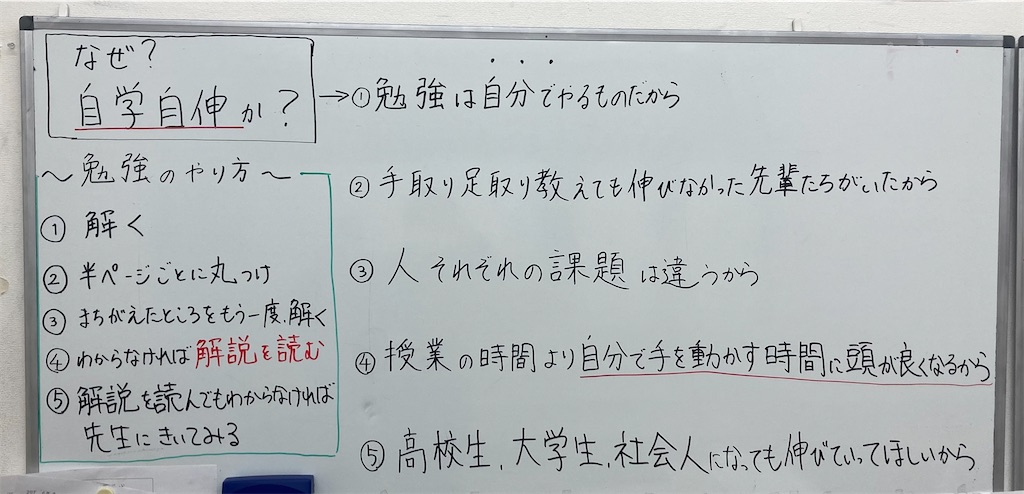 なぜ?
自学自伸か?
→①勉強は自分でやるものだから
②手取り足取り教えても伸びなかった先輩たちがいたから
③人それぞれの課題は違うから
④授業の時間より自分で手を動かす時間に頭が良くなるから
⑤高校生、大学生、社会人になっても伸びていってほしいから
〜勉強のやり方〜
①解く
②半ページごとに丸つけ
③まちがえたところをもう一度、解く
④わからなければ解説を読む
⑤解説を読んでもわからなければ
先生にきいてみる